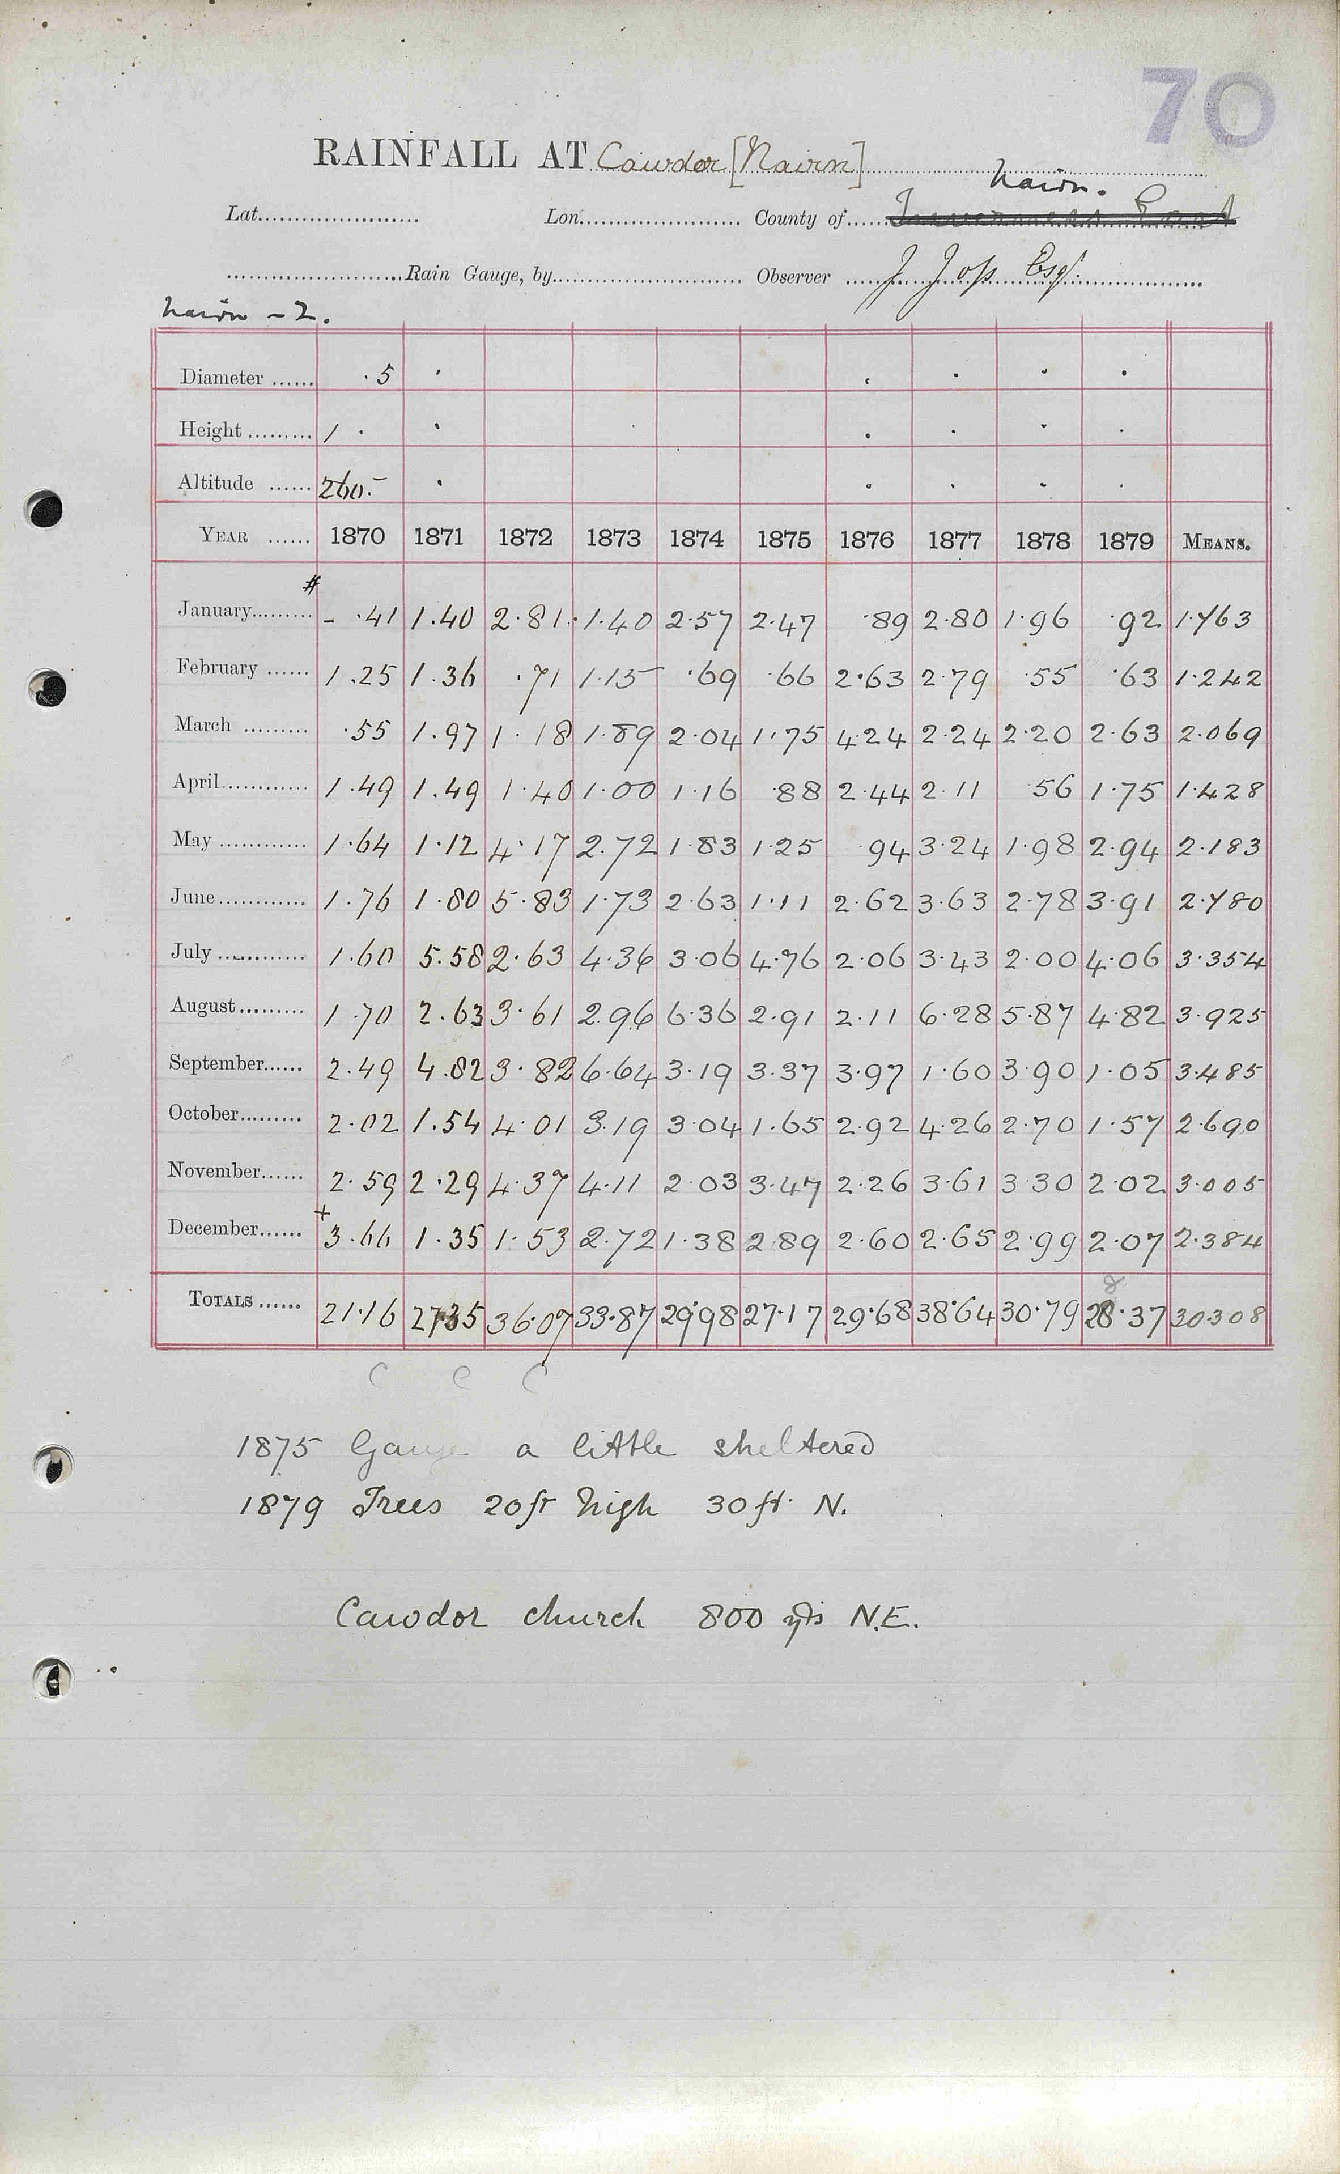 70
RAINFALL AT Cawdor [Nairn]
Nairn.
Lat. Lon. County of Inverness East
Rain Gauge, by Observer J Joss Esqr.
Nairn - 2.
Diameter ...... .5
Height ......... 1 .
Altitude ...... 260.
YEAR ...... 1870 1871 1872 1873 1874 1875 1876 1877 1878 1879 MEANS.
#
January......... - .41 1.40 2.81 1.40 2.57 2.47 .89 2.80 1.96 .92 1.763
February ...... 1.25 1.36 .71 1.15 .69 .66 2.63 2.79 .55 .63 1.242
March ......... .55 1.97 1.18 1.89 2.04 1.75 4.24 2.24 2.20 2.63 2.069
April............ 1.49 1.49 1.40 1.00 1.16 .88 2.44 2.11 56 1.75 1.428
May ............ 1.64 1.12 4.17 2.72 1.83 1.25 94 3.24 1.98 2.94 2.183
June............ 1.76 1.80 5.83 1.73 2.63 1.11 2.62 3.63 2.78 3.91 2.780
July ............ 1.60 5.58 2.63 4.36 3.06 4.76 2.06 3.43 2.00 4.06 3.354
August......... 1.70 2.63 3.61 2.96 6.36 2.91 2.11 6.28 5.87 4.82 3.925
September...... 2.49 4.82 3.82 6.64 3.19 3.37 3.97 1.60 3.90 1.05 3.485
October......... 2.02 1.54 4.01 3.19 3.04 1.65 2.92 4.26 2.70 1.57 2.690
November...... 2.59 2.29 4.37 4.11 2.03 3.47 2.26 3.61 3.30 2.02 3.005
+
December...... 3.66 1.35 1.53 2.72 1.38 2.89 2.60 2.65 2.99 2.07 2.384
8
TOTALS ...... 21.16 27.35 36.07 33.87 29.98 27.17 29.68 38.64 30.79 28.37 30.308
C C C
1875 Gauge a little sheltered
1879 Trees 20ft high 30ft. N.
Cawdor church 800 yds N.E.